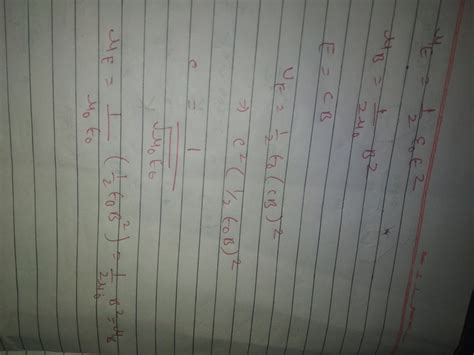 u_E = 1/2 ε₀E²
u_B = 1/2μ₀ B²
E = cB
u_E = 1/2 ε₀ (cB)²
⇒ c² (1/2 ε₀B)²
c = 1/√μ₀ε₀
u_E = 1/μ₀ε₀ (1/2 ε₀B²) = 1/2μ₀ B² = u_B